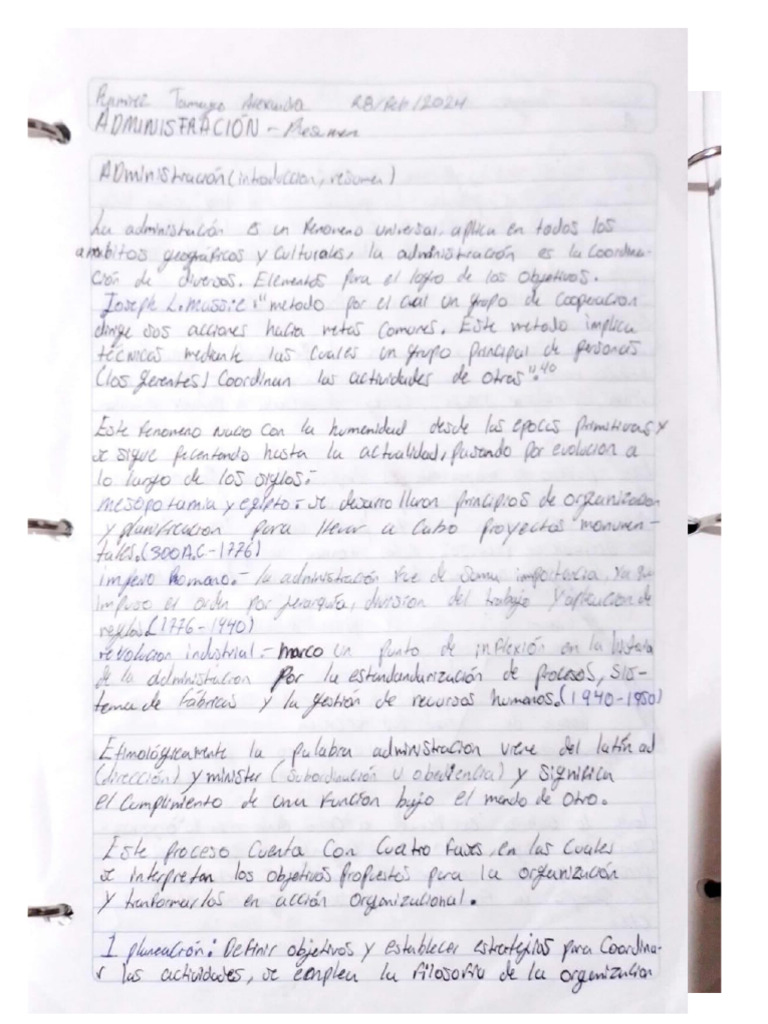 Ramirez Tamayo Alexandra 28/Feb/2024
ADMINISTRACIÓN - Resumen
ADministración (introduccion, resumen)
La administración es un fenomeno universal, aplica en todos los
ambitos geográficos y culturales, la administración es la coordina-
ción de diversos. Elementos para el logro de los objetivos.
Joseph L. Massie: "metodo por el cual un grupo de cooperacion
dirige sus acciones hacia metas comunes. Este metodo implica
técnicas mediante las cuales un grupo principal de personas
(los gerentes) coordinan las actividades de otras".40
Este fenomeno nacio con la humanidad desde las epocas primitivas y
se sigue presentando hasta la actualidad, pasando por evolucion a
lo largo de los siglos:-
mesopotamia y egipto:- se desarrollaron principios de organizacion
y planificacion para llevar a cabo proyectos monumen-
tales. (300 A.C-1776)
imperio Romano.- la administración fue de suma importancia, ya que
impuso el orden por jerarquía, division del trabajo y aplicacion de
reglas (1776-1940)
revolucion industrial.- marco un punto de inflexión en la historia
de la administracion por la estandandarización de procesos, sis-
tema de fábricas y la gestión de recursos humanos. (1940-1950)
Etimológicamente la palabra administracion viene del latín ad
(dirección) y minister (subordinación u obediencia) y significa
el cumplimiento de una funcion bajo el mando de otro.
Este proceso cuenta con cuatro fases, en las cuales
se interpretan los objetivos propuestos para la organización
y tranformarlos en acción organizacional.
1 planeación: Definir objetivos y establecer estrategias para coordina-
r las actividades, se emplea la filosofia de la organizacion